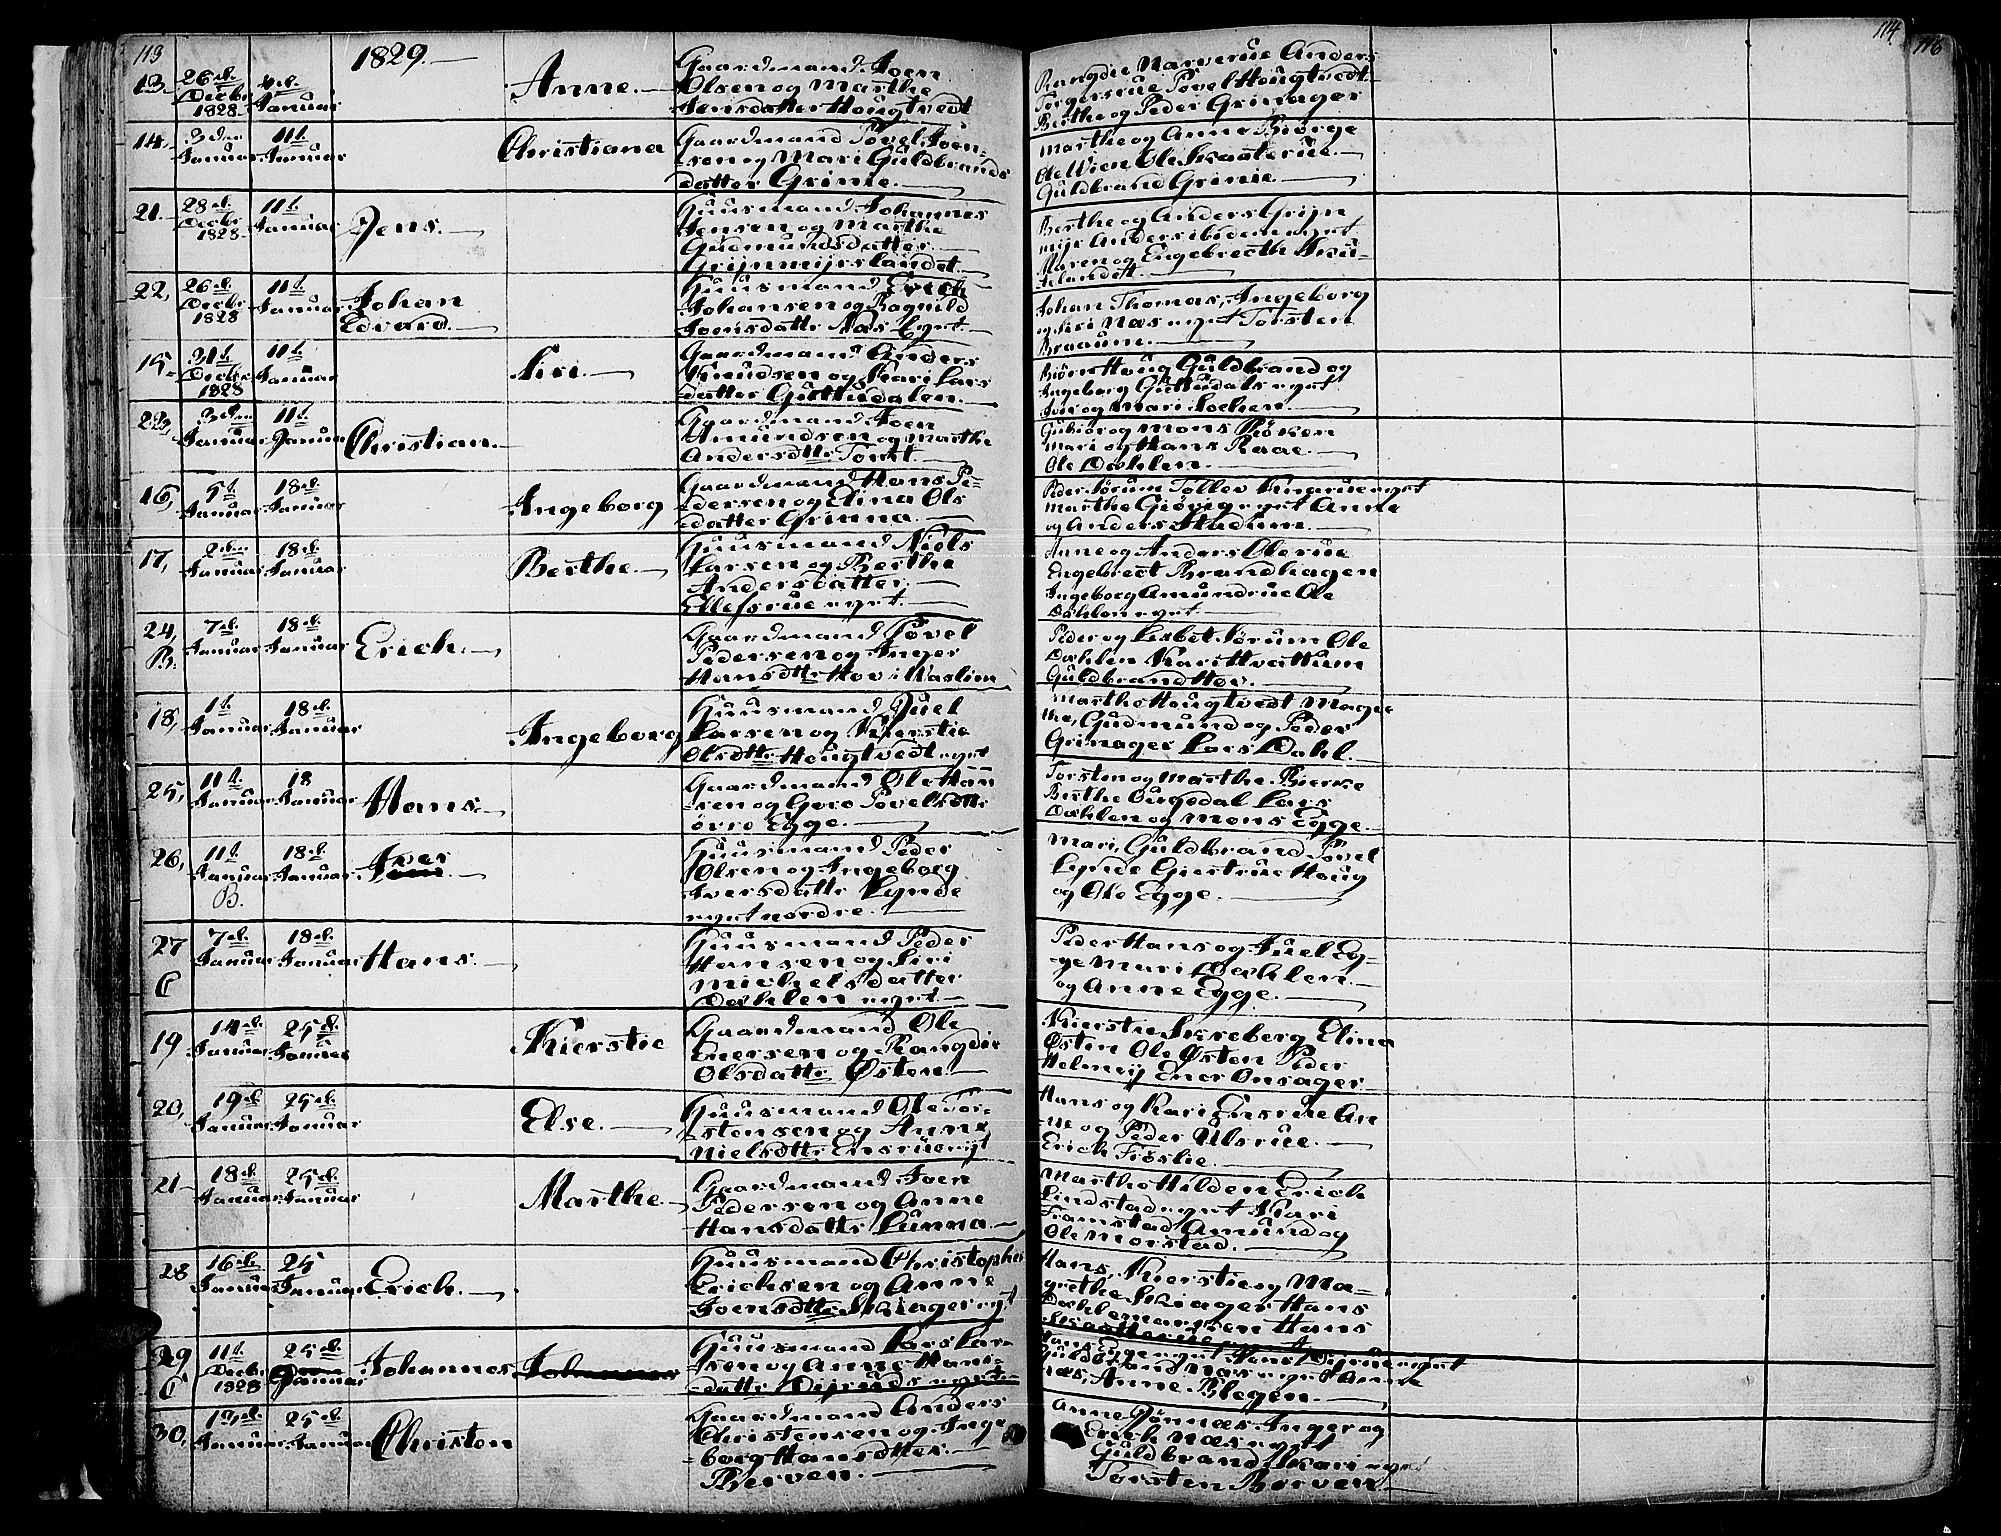 113
1829.
114
116
13.
26 d.
Decbr.
1828
4 d.
Januar
Anne.
Gaardmand Joen
Olsen og Marthe
Jensdatter Hougtvedt
Rangdie Narverue Anders
Torgersrue Povel Hougtvedt
Berthe og Peder Grinager
14.
3 den
Januar
11 t.
Januar
Christiana
Gaardmand Povel Joen-
sen og Mari Guldbrands
datter Grinie.
Marthe og Anne Biørge
Ole Wien Ole Skaaterue.
Guldbrand Grinie.
21.
28 d.
Decbr.
1828
11 t.
Januar
Jens.
Huusmand Johannes
Jensen og Marthe
Gudmundsdatter
Grijnmijrslandet.
Berthe og Anders Grijn
mijr Anders ibidem eyet
Maren og Engebrecth
landet.
22,
26 d.
Decbr.
1828
11 t.
Januar
Johan
Edvard.
Huusmand Erich
Johansen og Ragnild
Joensdattr. Næs Eyet.
Johan Thomas, Ingeborg
og Siri Næs eyet Torsten
Braaum.
15.
31 t.
Decbr.
1828
11 t.
Januar
Siri.
Gaardmand Anders
Knudsen og Kari Lars
datter Guttudalen.
Biørn Houg Guldbrand og
Ingeborg Guttudals eyet
Iver og Mari Lochen.
23,
3 den
Januar
11 t.
Januar
Christian.
Gaardmand Joen
Amundsen og Marthe
Andersdttr. Torst.
Gubiør og Mons Røken
Mari og Hans Raae.
Ole Dæhlen.
16,
5 t.
Januar
18 d.
Januar
Ingeborg
Gaardmand Hans Pe-
dersen og Elina Ols
datter Grinna.
Peder Sørum Tollev Knarue eyet
Marthe Giøvig eyet Anne
og Anders Stadum.
17,
2 den
Januar
18 d.
Januar
Berthe.
Huusmand Niels
Larsen og Berthe
Andersdatter
Ellefsrue eyet.
Anne og Anders Olerue
Engebrect Brandhagen
Ingeborg Amundrue Ole
Dæhlen eyet.
24,
B.
7 d.
Januar
18 d.
Januar
Erich.
Gaardmand Povel
Pedersen og Inger
Hansdttr. Hov i Waslien
Peder og Lisbet Sørum Ole
Dæhlen Kari Hvattum
Guldbrand Hov.
18,
1 t.
Januar
18 d.
Januar
Ingeborg
Huusmand Juel
Larsen og Kierstie
Olsdttr. Hougtvedt eyet
Marthe Hougtvedt Magre
the, Gudmund og Peder
Grinager Lars Dahl.
25,
11 t.
Januar
18
Januar
Hans.
Gaardmand Ole Han
sen og Goro Povelsdttr.
øvre Egge.
Torsten og Marthe Bierke
Berthe Ougedal Lars
Dæhlen og Mons Egge.
26,
11 t.
Januar
B.
18 d.
Januar
Iver
Huusmand Peder
Olsen og Ingeborg
Iversdattr. Lynde
eyet nordre.
Mari, Guldbrand Povel
Lynde Giestrue Houg
og Ole Egge.
27
C
7 d.
Januar
18 d.
Januar
Hans.
Huusmand Peder
Hansen og Siri
Michelsdatter
Dæhlen eyet.
Peder Hans og Juel Eg-
ge Mari Dæhlen
og Anne Egge.
19
14 d.
Januar
25 d.
Januar
Kierstie
Gaardmand Ole
Enersen og Rangdie
Olsdattr. Østen.
Kierstie Skreberg Elina
Østen Ole Østen Peder
Helmeij Ener Onsager
20,
19 d.
Januar
25 d.
Januar
Else.
Huusmand Ole Tor-
stensen og Anne
Nielsdttr. Ensrue eyt
Hans og Kari Ensrue An
ne og Peder Ulsrue.
Erich Frøslie.
21
18 d.
Januar
25 d.
Januar
Marthe.
Gaardmand Joen
Pedersen og Anne
Hansdattr. Lunna.
Marthe Hilden Erich
Lindstad eyet Kari
Framstad Amund og
Ole Morstad.
28
16 d.
Januar
25
Januar
Erich.
Huusmand Christopher
Erichsen og Anne
Joensdttr. Skiager eyt
Hans, Kierstie og Ma-
grethe Skiager Hans
Dæhlemarken Hans
Skaatterue
29
C
11 t.
Decbr.
1828
25 d.
Januar
Johannes
Johannes
Huusmand Lars Lar-
sen og Anne Hans-
dattr. Dijruds eyet
Guldbrand Næs eyet Anne
næs, Anne Blegen.
30,
Januar
25 d.
Januar
Christen
Gaardmand Anders
Christensen og Inge
borg Hansdtter.
Berven.
Anne Grønnæs Inger og
Erich Næs eyet
Guldbrand Skari eyet
Torsten Berven